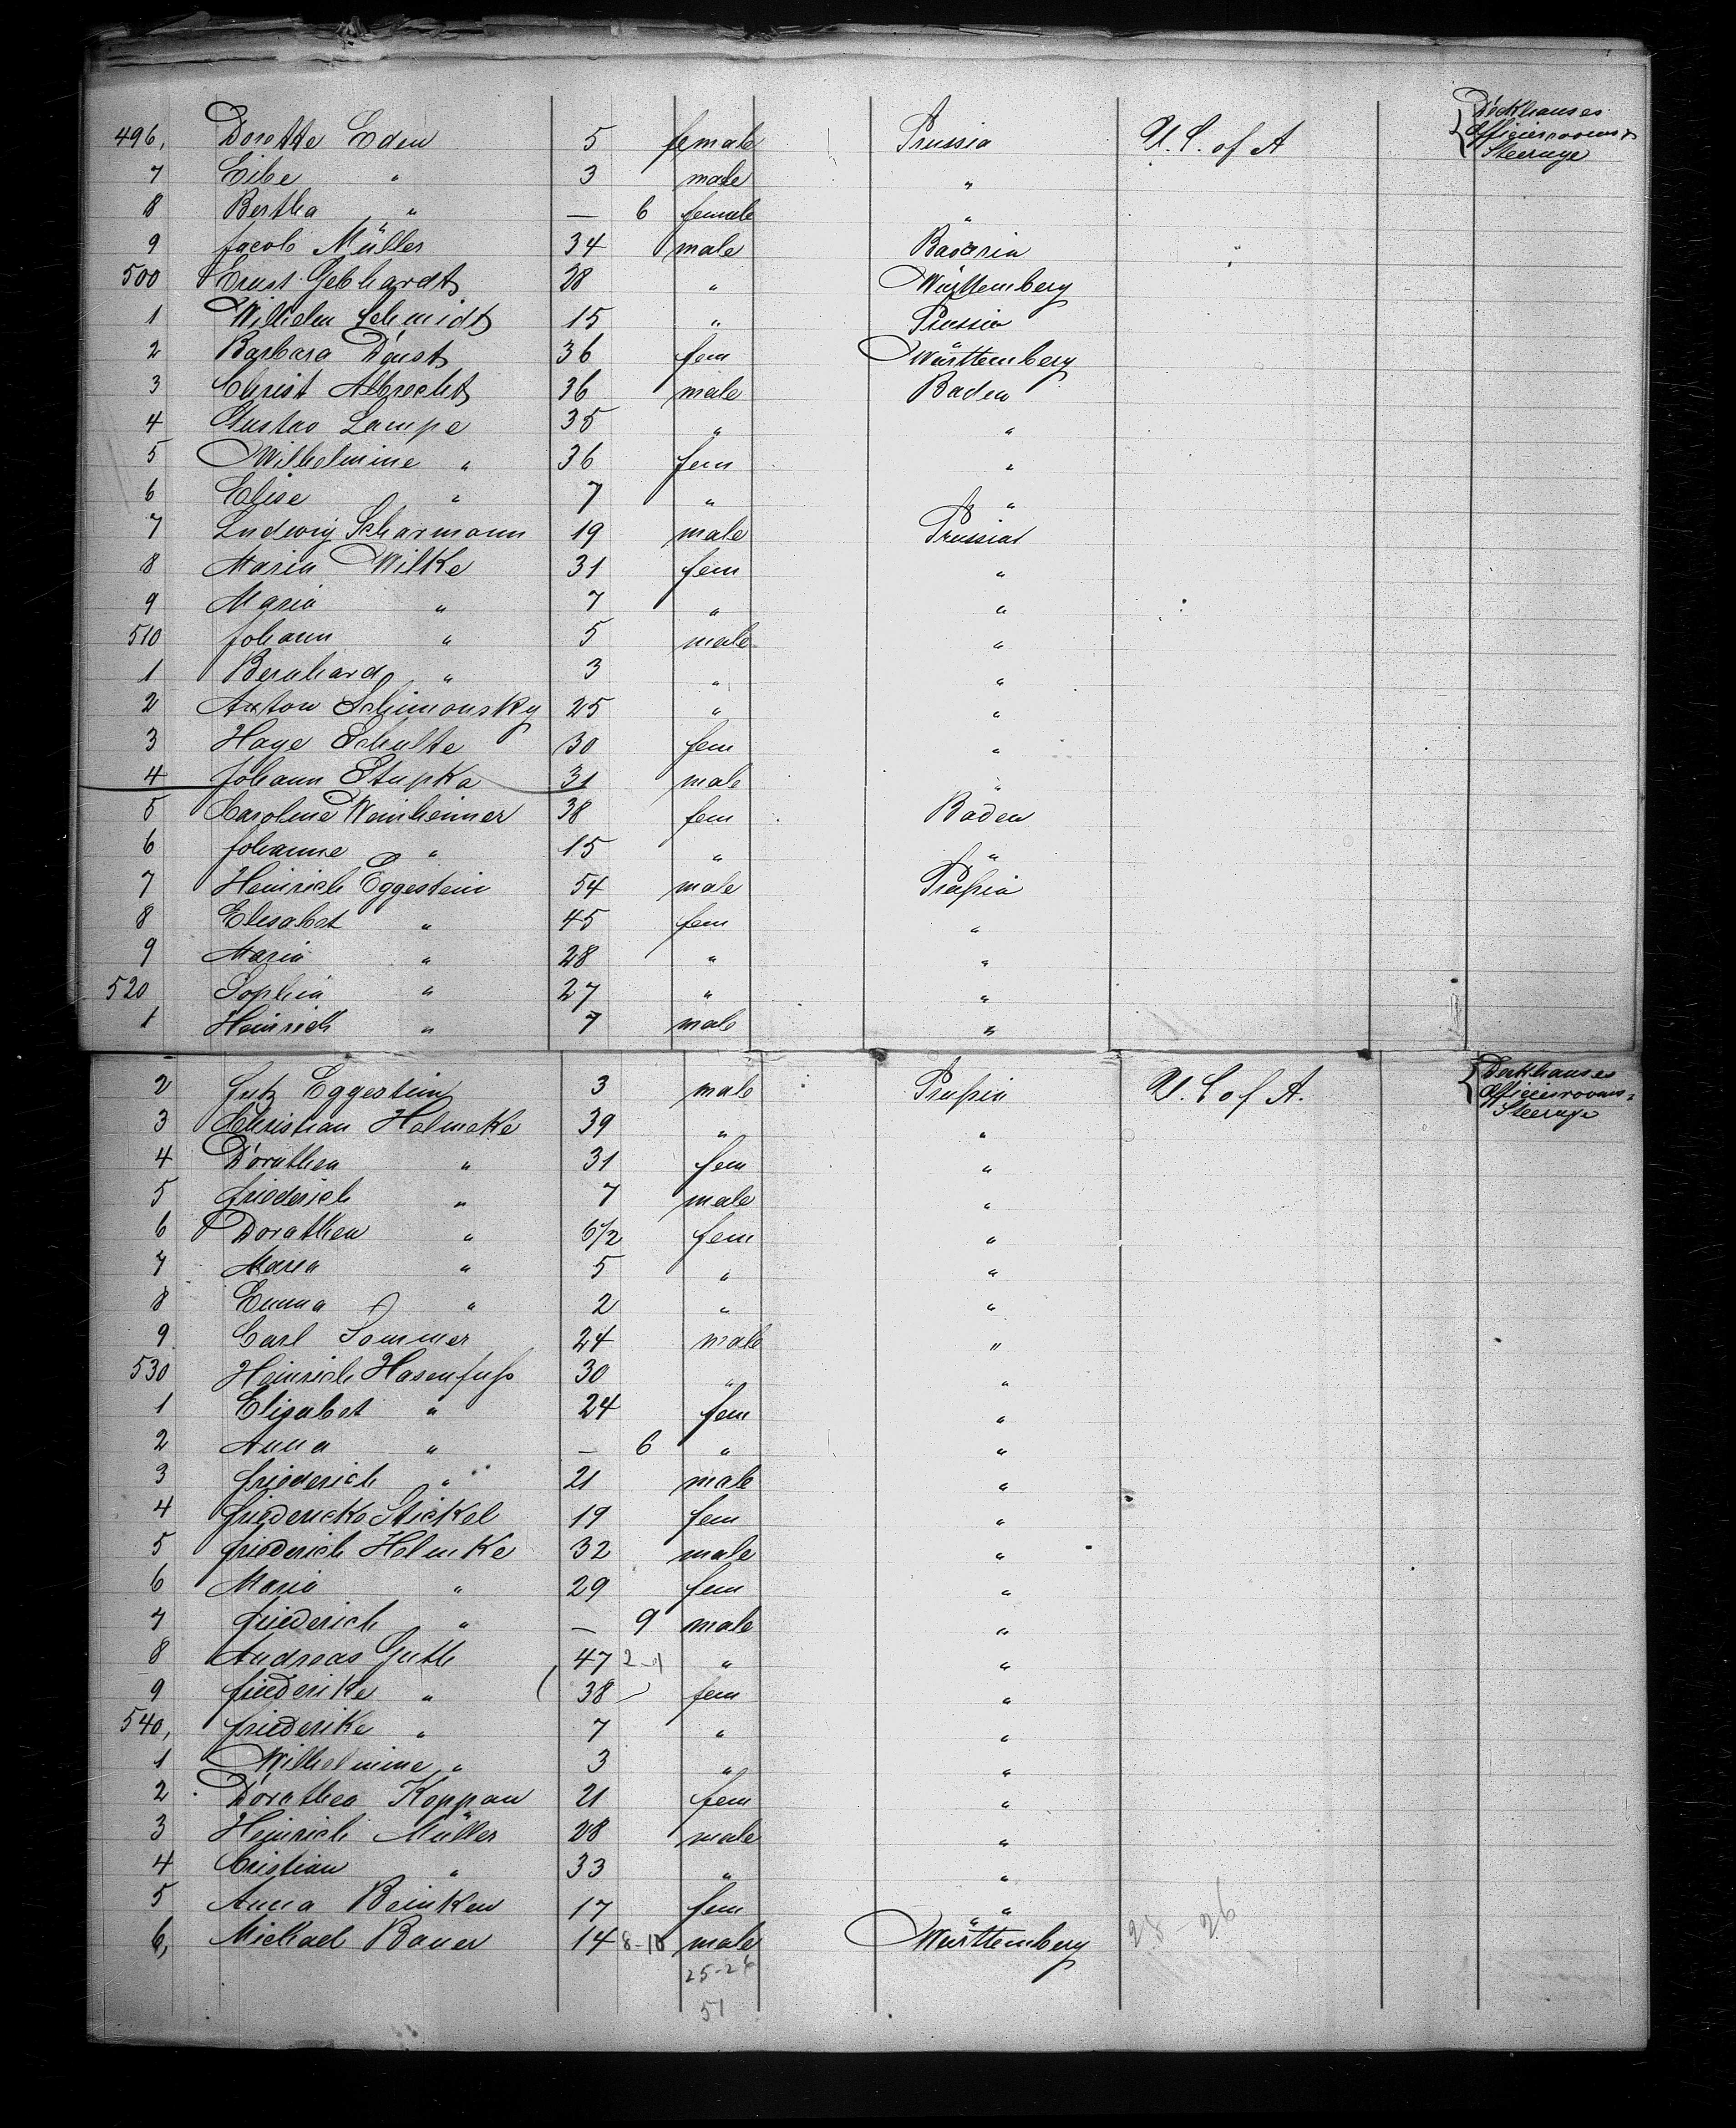 496, Dorette Eden 5 female Prussia U. S. of A { Deckhouses Officiersrooms & Steerage
7 Eibe " 3 male "
8 Bertha " — 6 female "
9 Jacob Müller 34 male Bavaria
500 Ernst Gebhardt 28 " Württemberg
1 Wilhelm Schmidt 15 " Prussia
2 Barbara Daust 36 fem Württemberg
3 Christ Albrecht 36 male Baden
4 Gustav Lampe 35 " "
5 Wilhelmine " 36 fem "
6 Elise " 7 " "
7 Ludwig Scharmann 19 male Prussia
8 Maria Wilke 31 fem "
9 Maria " 7 " "
510 Johann " 5 male "
1 Bernhard " 3 " "
2 Anton Schimonsky 25 " "
3 Haye Schulte 30 fem "
4 Johann Stupka 31 male "
5 Caroline Weinheimer 38 fem Baden
6 Johanne " 15 " "
7 Heinrich Eggestein 54 male Prußia
8 Elisabet " 45 fem "
9 Maria " 28 " "
520 Sophia " 27 " "
1 Heinrich " 7 male "
2 Fritz Eggestein 3 male Prußia U. S of A. { Deckhouses Officiersrooms & Steerage
3 Christian Helmeke 39 " "
4 Dorathea " 31 fem "
5 Friederich " 7 male "
6 Dorathea " 6/2 fem "
7 Maria " 5 " "
8 Emma " 2 " "
9 Carl Sommer 24 male "
530 Heinrich Hasenfuß 30 " "
1 Elisabet " 24 fem "
2 Anna " — 6 " "
3 Friederich " 21 male "
4 Friedericke Stickel 19 fem "
5 Friederich Helmke 32 male "
6 Maria " 29 fem "
7 Friederich " — 9 male "
8 Andreas Guth 47 2-1 " "
9 Friederike " 38 fem "
540, Friederike " 7 " "
1 Wilhelmine " 3 " "
2 Dorathea Koppau 21 fem "
3 Heinrich Müller 28 male "
4 Cristian " 33 " "
5 Anna Beinken 17 fem "
6, Michael Bauer 14 8-10 male Württemberg 28-26
25-26
51